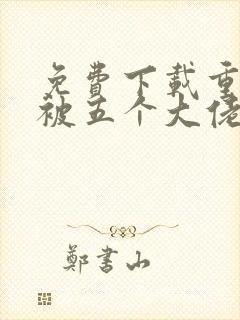 免費下載重
被五个大佬
鄭書山